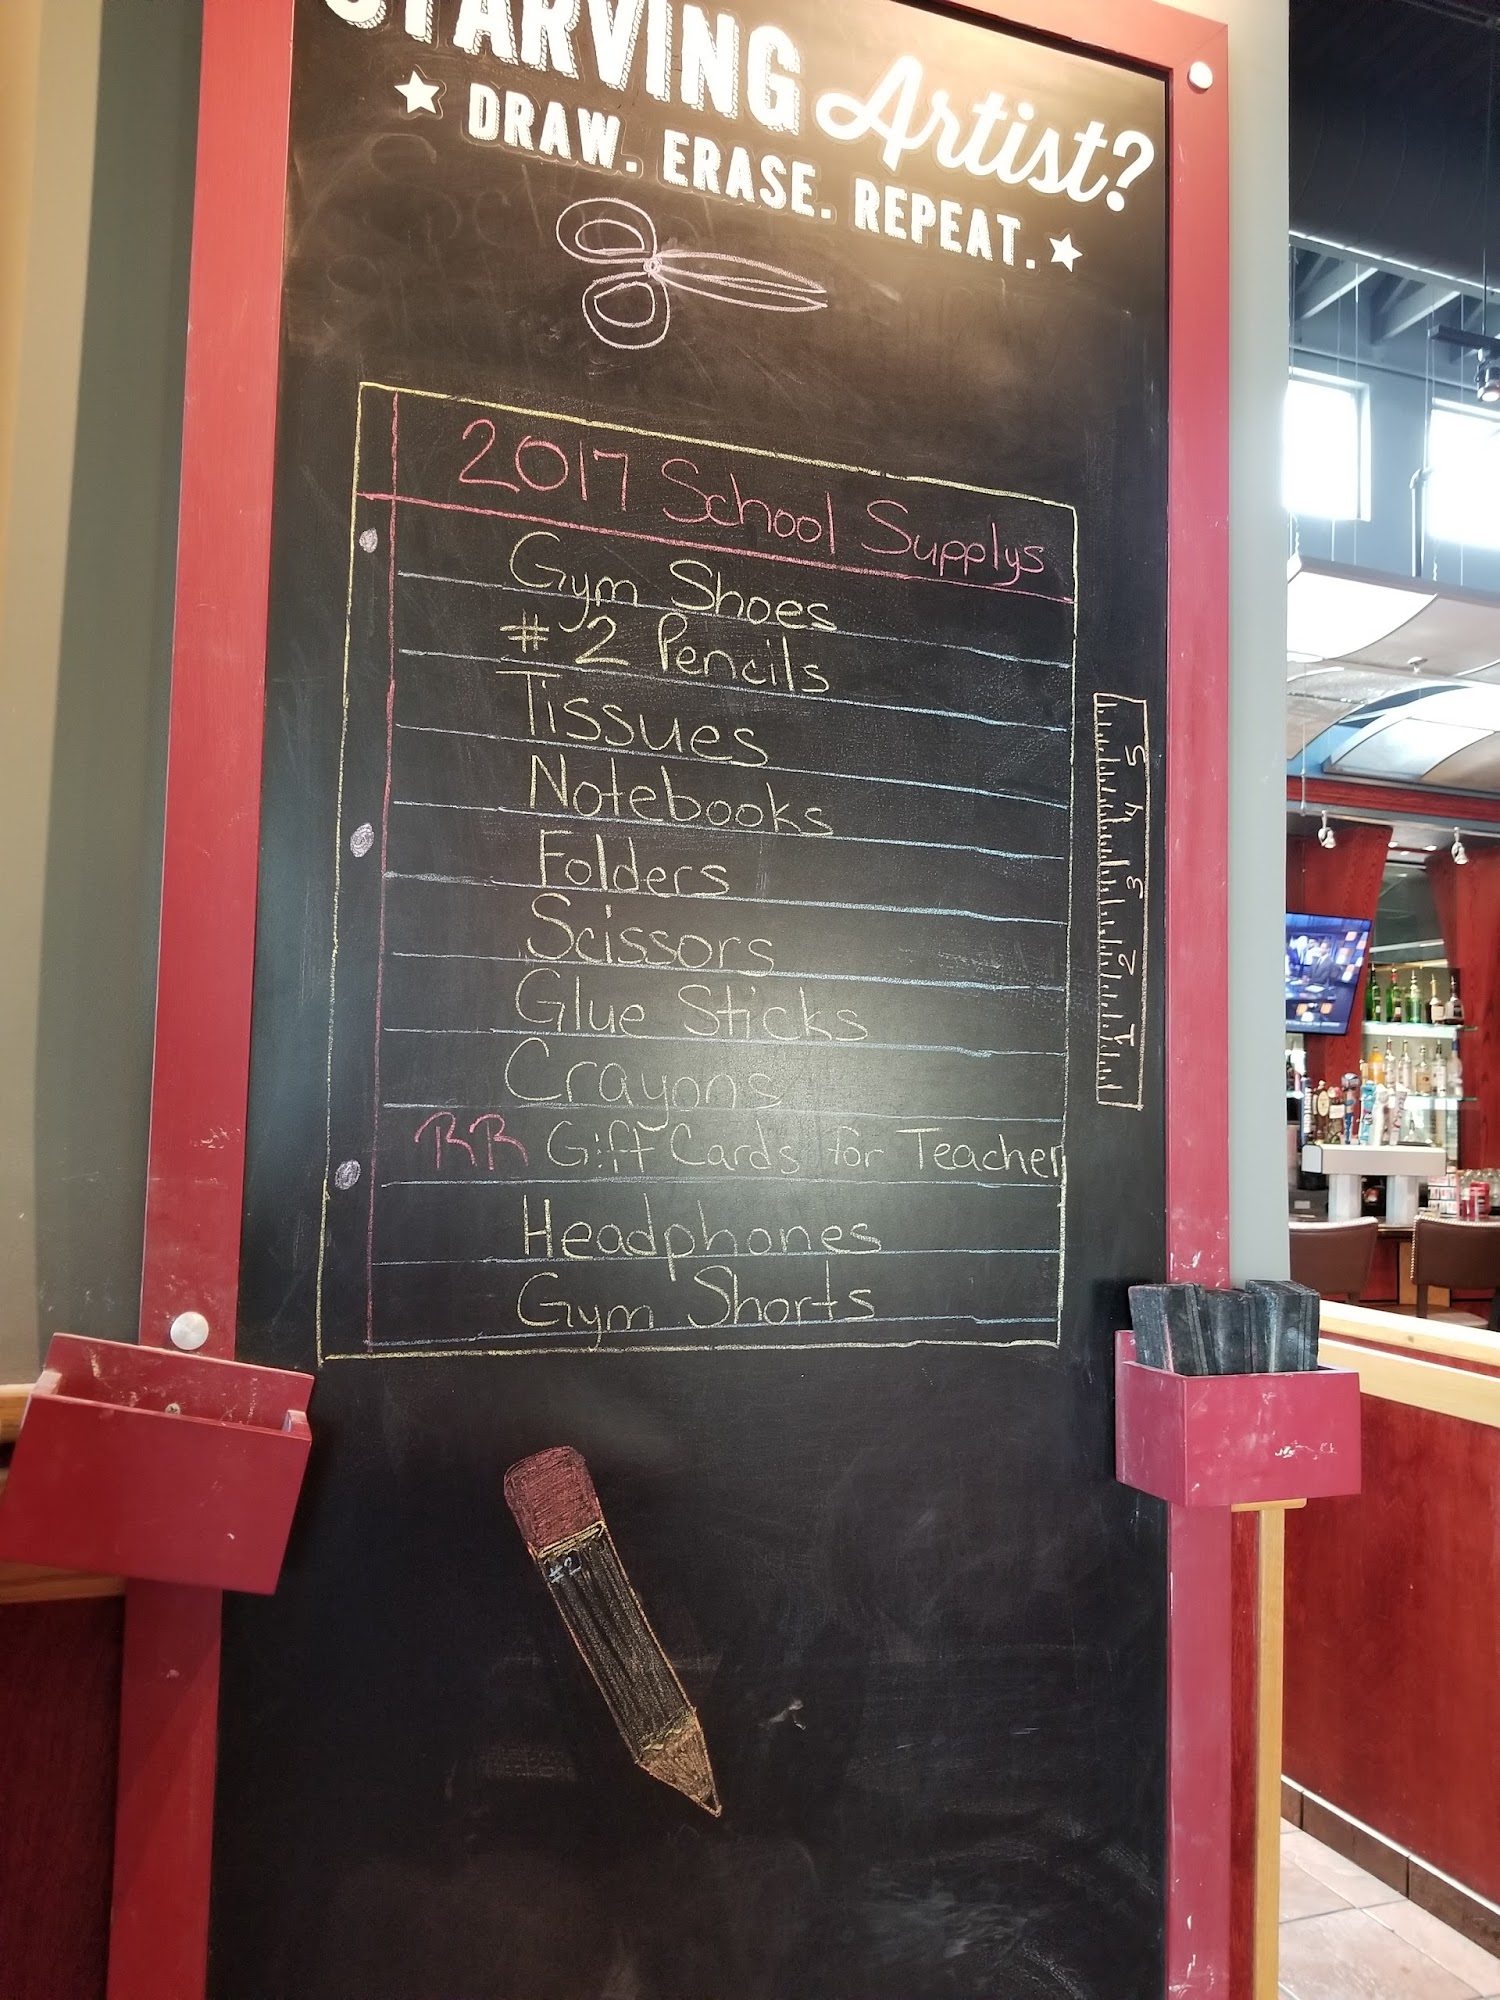 STARVING Artist?
DRAW. ERASE. REPEAT.
2017 School Supplys
Gym Shoes
# 2 Pencils
Tissues
Notebooks
Folders
Scissors
Glue Sticks
Crayons
RR Gift Cards for Teacher
Headphones
Gym Shorts
5
4
3
2
1
#2